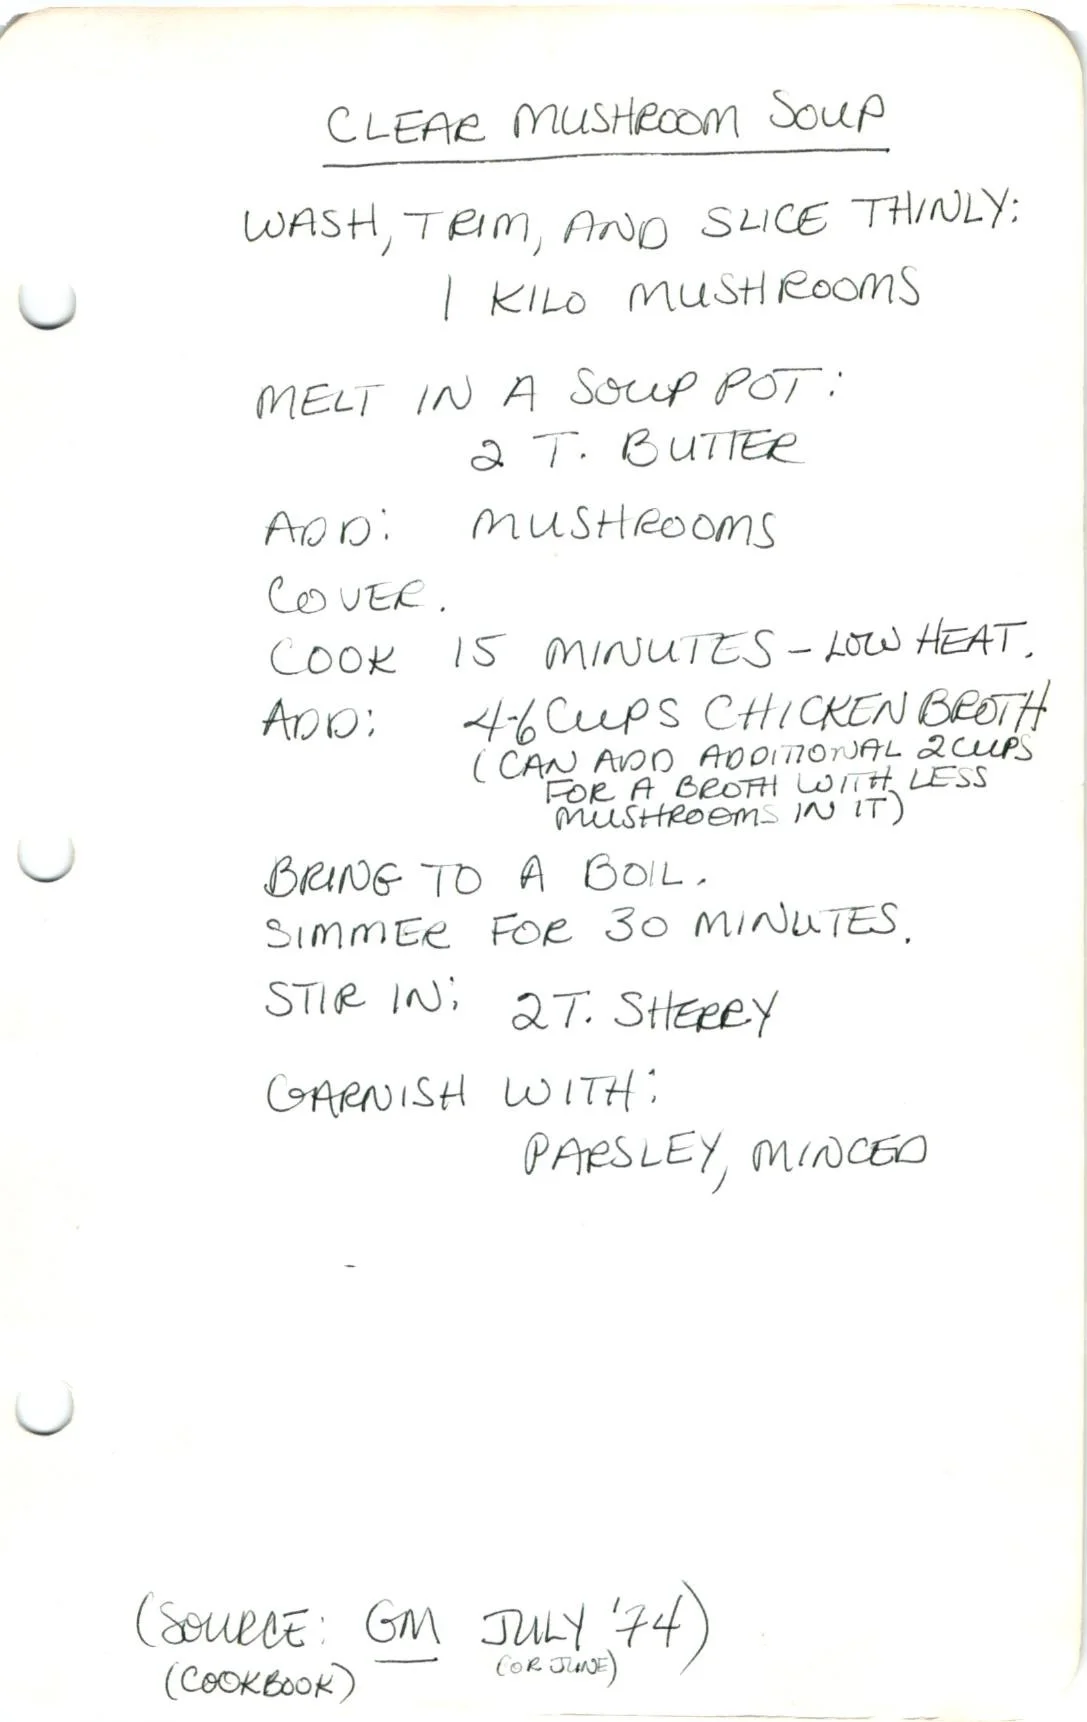 CLEAR MUSHROOM SOUP
WASH, TRIM, AND SLICE THINLY:
1 KILO MUSHROOMS
MELT IN A SOUP POT:
2 T. BUTTER
ADD: MUSHROOMS
COVER.
COOK 15 MINUTES - LOW HEAT.
ADD: 4-6 CUPS CHICKEN BROTH
(CAN ADD ADDITIONAL 2 CUPS
FOR A BROTH WITH LESS
MUSHROOMS IN IT)
BRING TO A BOIL.
SIMMER FOR 30 MINUTES.
STIR IN: 2 T. SHERRY
GARNISH WITH:
PARSLEY, MINCED
(SOURCE: GM JULY '74)
(COOKBOOK) (OR JUNE)